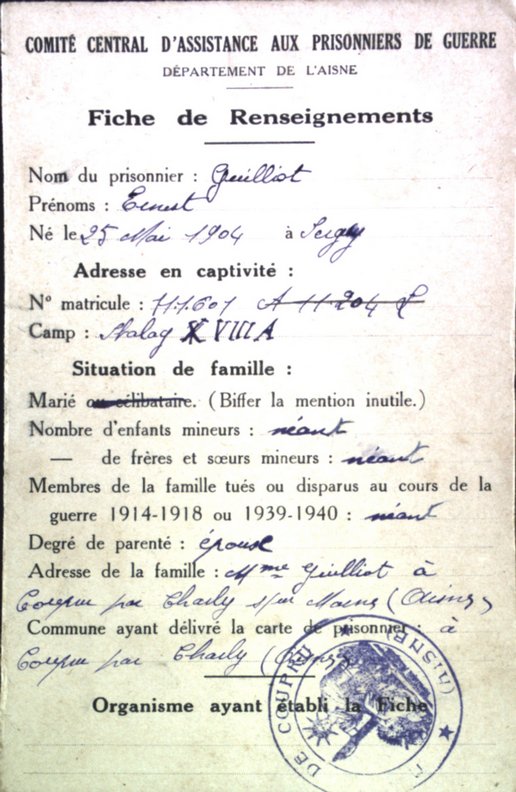 COMITÉ CENTRAL D'ASSISTANCE AUX PRISONNIERS DE GUERRE
DÉPARTEMENT DE L'AISNE
Fiche de Renseignements
Nom du prisonnier : Guilliot
Prénoms : Ernest
Né le 25 Mai 1904 à Sergy
Adresse en captivité :
N° matricule : 711601 A 11 204 L
Camp : Stalag XVIII A
Situation de famille :
Marié ou célibataire. (Biffer la mention inutile.)
Nombre d'enfants mineurs : néant
— de frères et sœurs mineurs : néant
Membres de la famille tués ou disparus au cours de la
guerre 1914-1918 ou 1939-1940 : néant
Degré de parenté : épouse
Adresse de la famille : Mme Guilliot à
Coupru par Charly sur Marne (Aisne)
Commune ayant délivré la carte de prisonnier : à
Coupru par Charly (Aisne)
Organisme ayant établi la Fiche
DE COUPRU (AISNE)